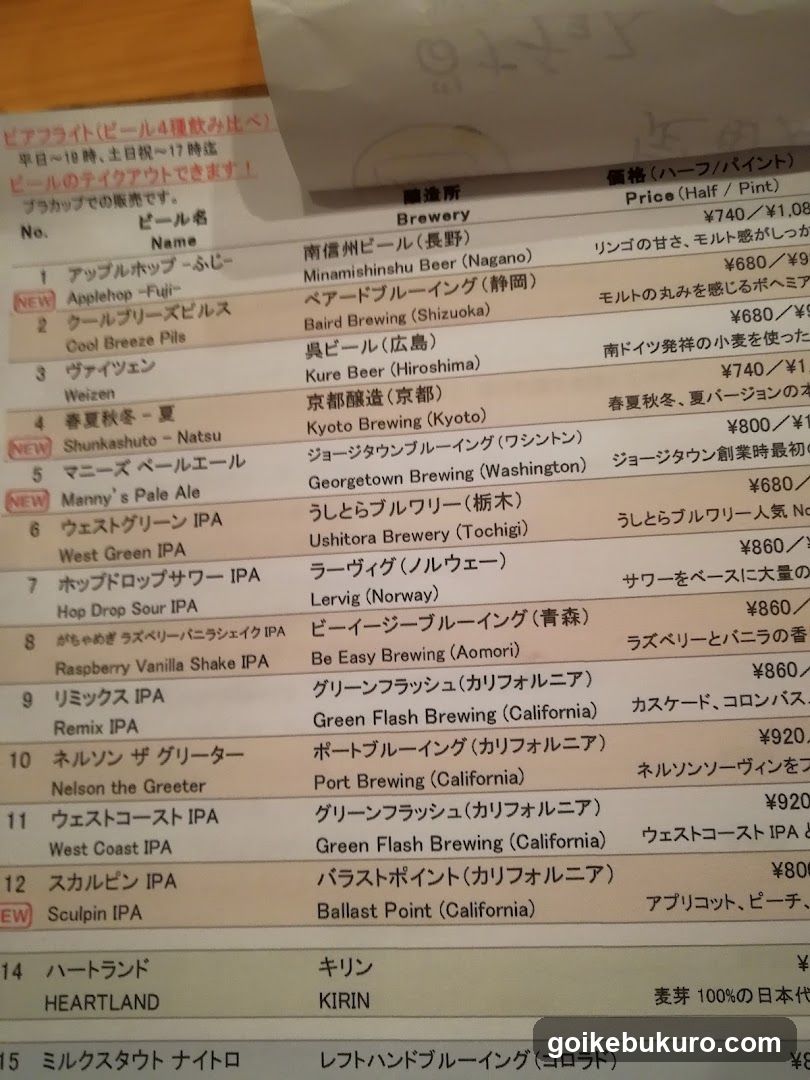 ビアフライト(ビール4種飲み比べ)
平日～18時、土日祝～17時迄
ビールのテイクアウトできます！
プラカップでの販売です。
No. ビール名 醸造所 価格(ハーフ/パイント)
Name Brewery Price (Half / Pint)
1 アップルホップ -ふじ- 南信州ビール(長野) ¥740／¥1,08
NEW Applehop -Fuji- Minamishinshu Beer (Nagano) リンゴの甘さ、モルト感がしっか
2 クールブリーズピルス ベアードブルーイング(静岡) ¥680／¥9
Cool Breeze Pils Baird Brewing (Shizuoka) モルトの丸みを感じるボヘミア
3 ヴァイツェン 呉ビール(広島) ¥680／¥9
Weizen Kure Beer (Hiroshima) 南ドイツ発祥の小麦を使った
4 春夏秋冬 - 夏 京都醸造(京都) ¥740／¥1,
NEW Shunkashuto - Natsu Kyoto Brewing (Kyoto) 春夏秋冬、夏バージョンの
5 マニーズ ペールエール ジョージタウンブルーイング(ワシントン) ¥800／¥1
NEW Manny's Pale Ale Georgetown Brewing (Washington) ジョージタウン創業時最初
6 ウェストグリーン IPA うしとらブルワリー(栃木) ¥680／
West Green IPA Ushitora Brewery (Tochigi) うしとらブルワリー人気 No
7 ホップドロップサワー IPA ラーヴィグ(ノルウェー) ¥860／
Hop Drop Sour IPA Lervig (Norway) サワーをベースに大量の
8 がちゃめぎ ラズベリーバニラシェイク IPA ビーイージーブルーイング(青森) ¥860／
Raspberry Vanilla Shake IPA Be Easy Brewing (Aomori) ラズベリーとバニラの香
9 リミックス IPA グリーンフラッシュ(カリフォルニア) ¥860／
Remix IPA Green Flash Brewing (California) カスケード、コロンバス
10 ネルソン ザ グリーター ポートブルーイング(カリフォルニア) ¥920
Nelson the Greeter Port Brewing (California) ネルソンソーヴィンを
11 ウェストコースト IPA グリーンフラッシュ(カリフォルニア) ¥920
West Coast IPA Green Flash Brewing (California) ウェストコースト IPA と
12 スカルピン IPA バラストポイント(カリフォルニア) ¥800
EW Sculpin IPA Ballast Point (California) アプリコット、ピーチ、
14 ハートランド キリン ¥
HEARTLAND KIRIN 麦芽 100%の日本代
15 ミルクスタウト ナイトロ レフトハンドブルーイング(コロラド) ¥8
goikebukuro.com